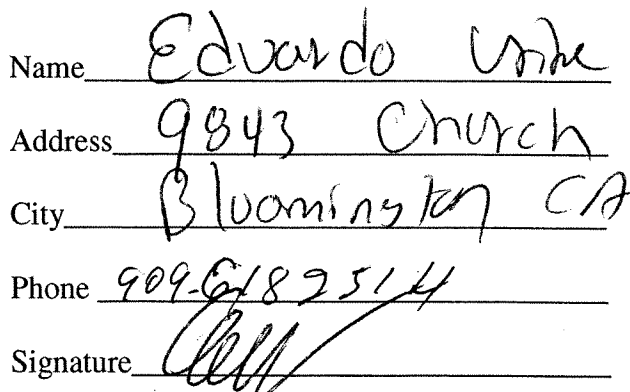 Name Eduardo Uribe
Address 9843 Church
City Bloomington CA
Phone 909-
Signature